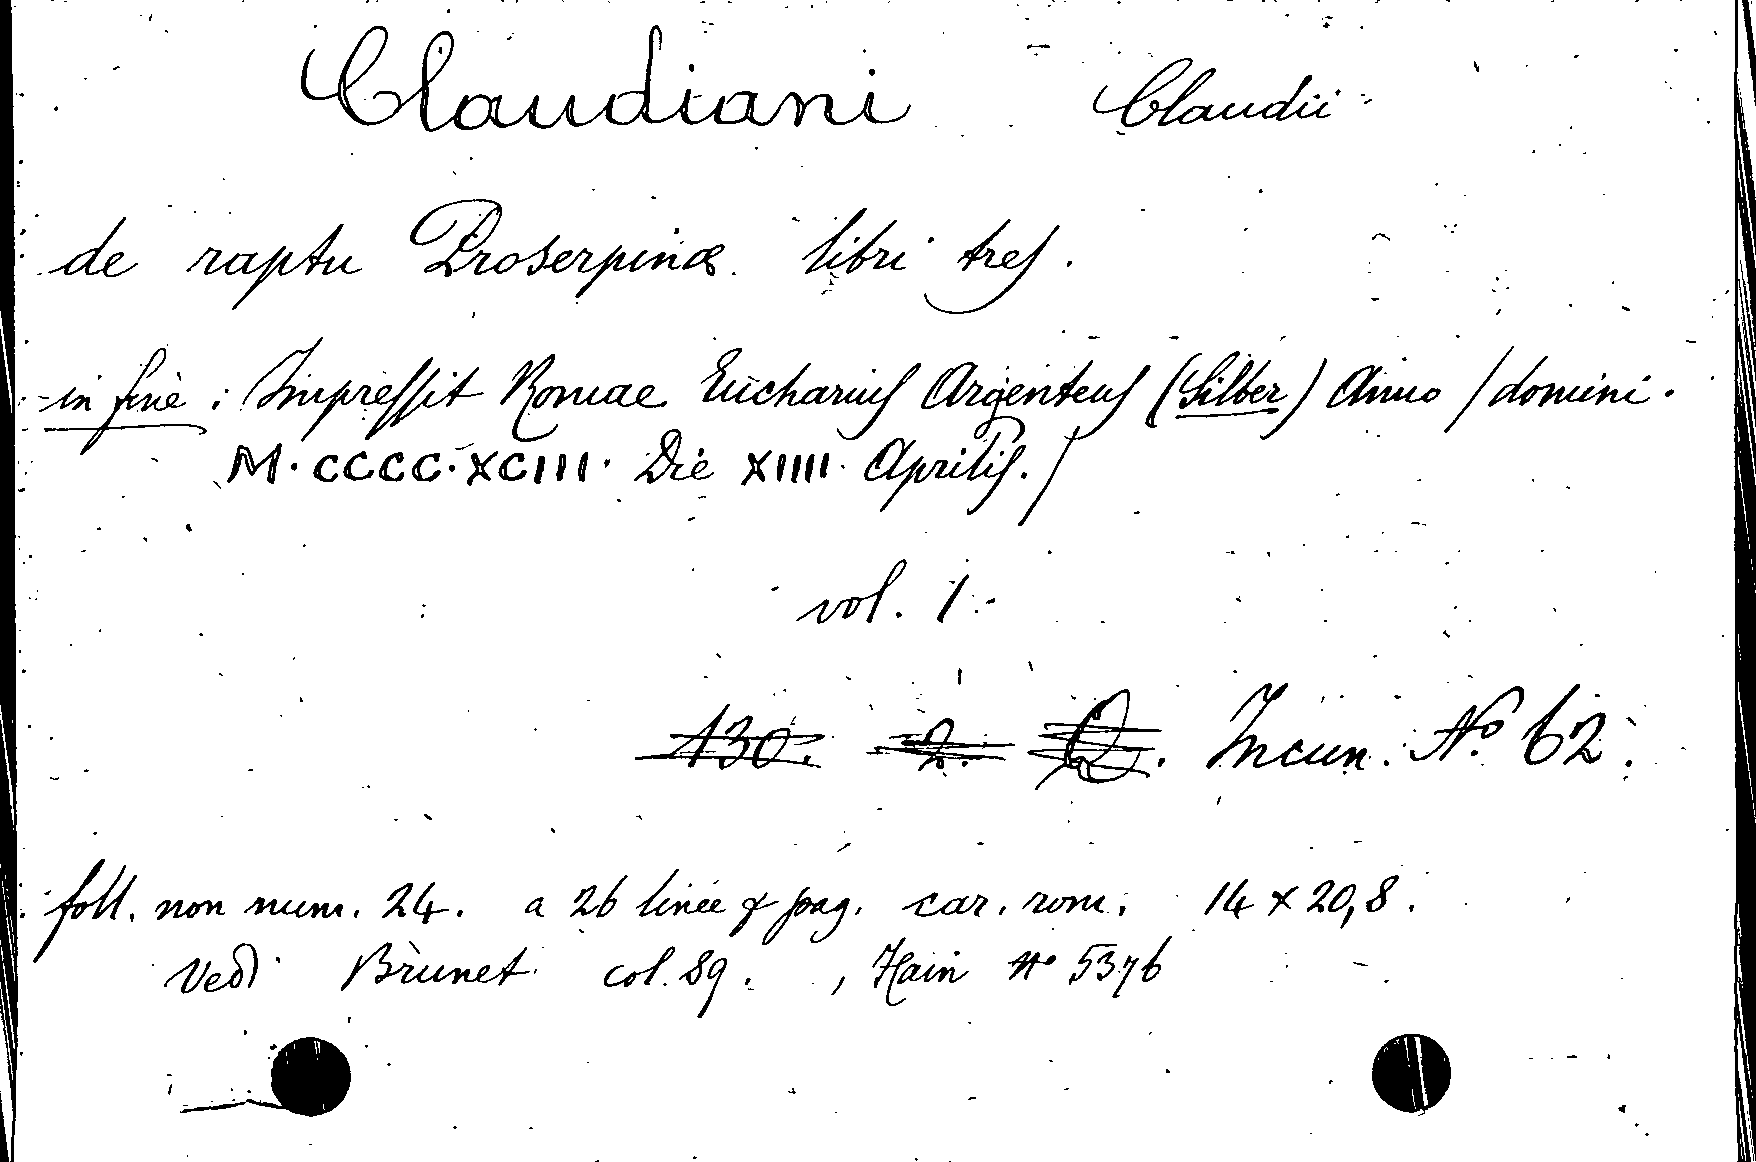 Claudiani Claudii
de raptu Proserpinæ libri tres.
in fine : Impressit Romae Eucharius Argenteus (Silber) Anno / domini.
M.CCCC.XCIII. Die XIIII. Aprilis. /
vol. 1.
130. 2. Q. Incun. Nº 62.
foll. non num. 24. a 26 linee p pag. car. rom. 14 x 20,8.
Vedi Brunet col. 89. , Hain Nº 5376